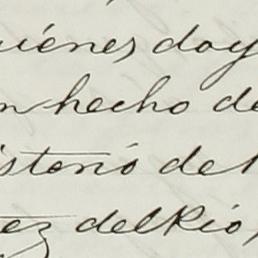 uiénes doy
n hecho de
isterio del
ez del Rio,